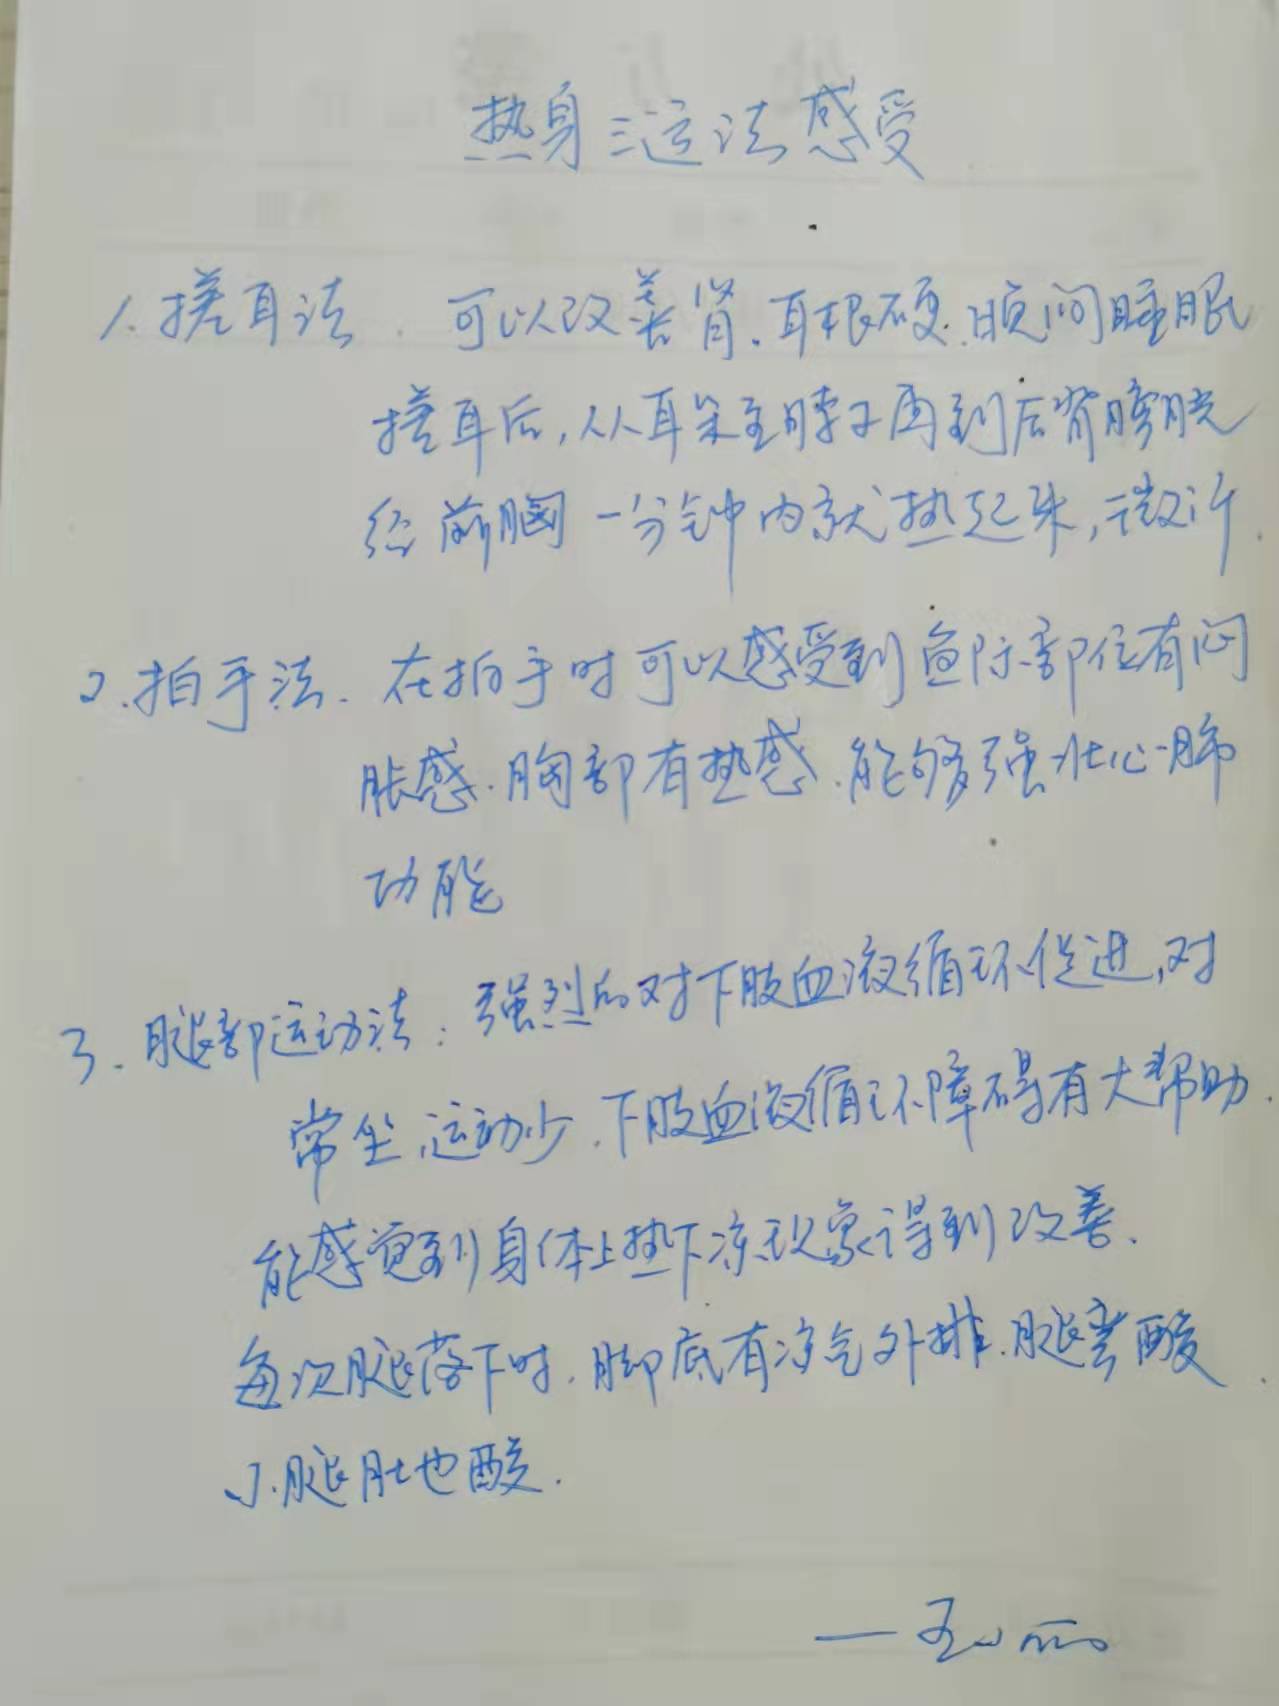 热身三运法感受
1.搓耳法. 可以改善肾.耳根硬.晚间睡眠
搓耳后,从耳朵至脖子再到后背膀胱
经前胸一分钟内就热起来,微汗.
2.拍手法. 在拍手时可以感受到鱼际部位有闷
胀感.胸部有热感.能够强壮心肺
功能
3.腿部运动法:强烈的对下肢血液循环促进,对
常坐,运动少.下肢血液循环障碍有大帮助.
能感觉到身体上热下凉现象得到改善.
每次腿落下时.脚底有凉气外排.腿酸.
小腿肚也酸.